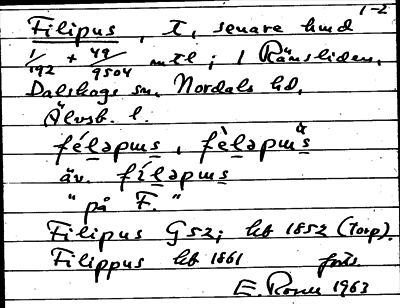 1-2
Filipus, T, senare hmd
1/192 + 49/9504 mtl; i Rämsliden,
Dalskogs sn, Nordals hd,
Älvsb. l.
féləpɯs, fèləpɯs
äv. fíləpɯs
"på F."
Filipus G52; hb 1852 (Torp).
Filippus hb 1861 forts.
E 1963